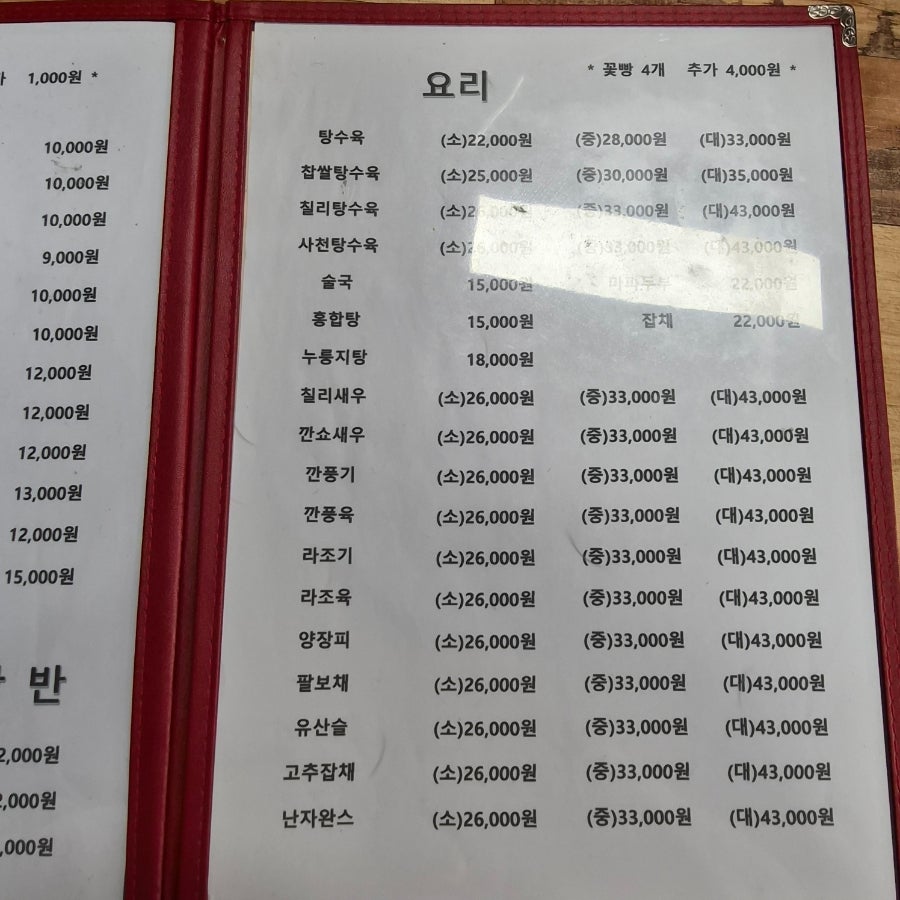 1,000원 *
10,000원
10,000원
10,000원
9,000원
10,000원
10,000원
12,000원
12,000원
12,000원
13,000원
12,000원
15,000원
반
2,000원
2,000원
,000원
요리 * 꽃빵 4개 추가 4,000원 *
탕수육 (소)22,000원 (중)28,000원 (대)33,000원
찹쌀탕수육 (소)25,000원 (중)30,000원 (대)35,000원
칠리탕수육 (소)26,000원 (중)33,000원 (대)43,000원
사천탕수육 (소)26,000원 (중)33,000원 (대)43,000원
술국 15,000원 마파두부 22,000원
홍합탕 15,000원 잡채 22,000원
누룽지탕 18,000원
칠리새우 (소)26,000원 (중)33,000원 (대)43,000원
깐쇼새우 (소)26,000원 (중)33,000원 (대)43,000원
깐풍기 (소)26,000원 (중)33,000원 (대)43,000원
깐풍육 (소)26,000원 (중)33,000원 (대)43,000원
라조기 (소)26,000원 (중)33,000원 (대)43,000원
라조육 (소)26,000원 (중)33,000원 (대)43,000원
양장피 (소)26,000원 (중)33,000원 (대)43,000원
팔보채 (소)26,000원 (중)33,000원 (대)43,000원
유산슬 (소)26,000원 (중)33,000원 (대)43,000원
고추잡채 (소)26,000원 (중)33,000원 (대)43,000원
난자완스 (소)26,000원 (중)33,000원 (대)43,000원